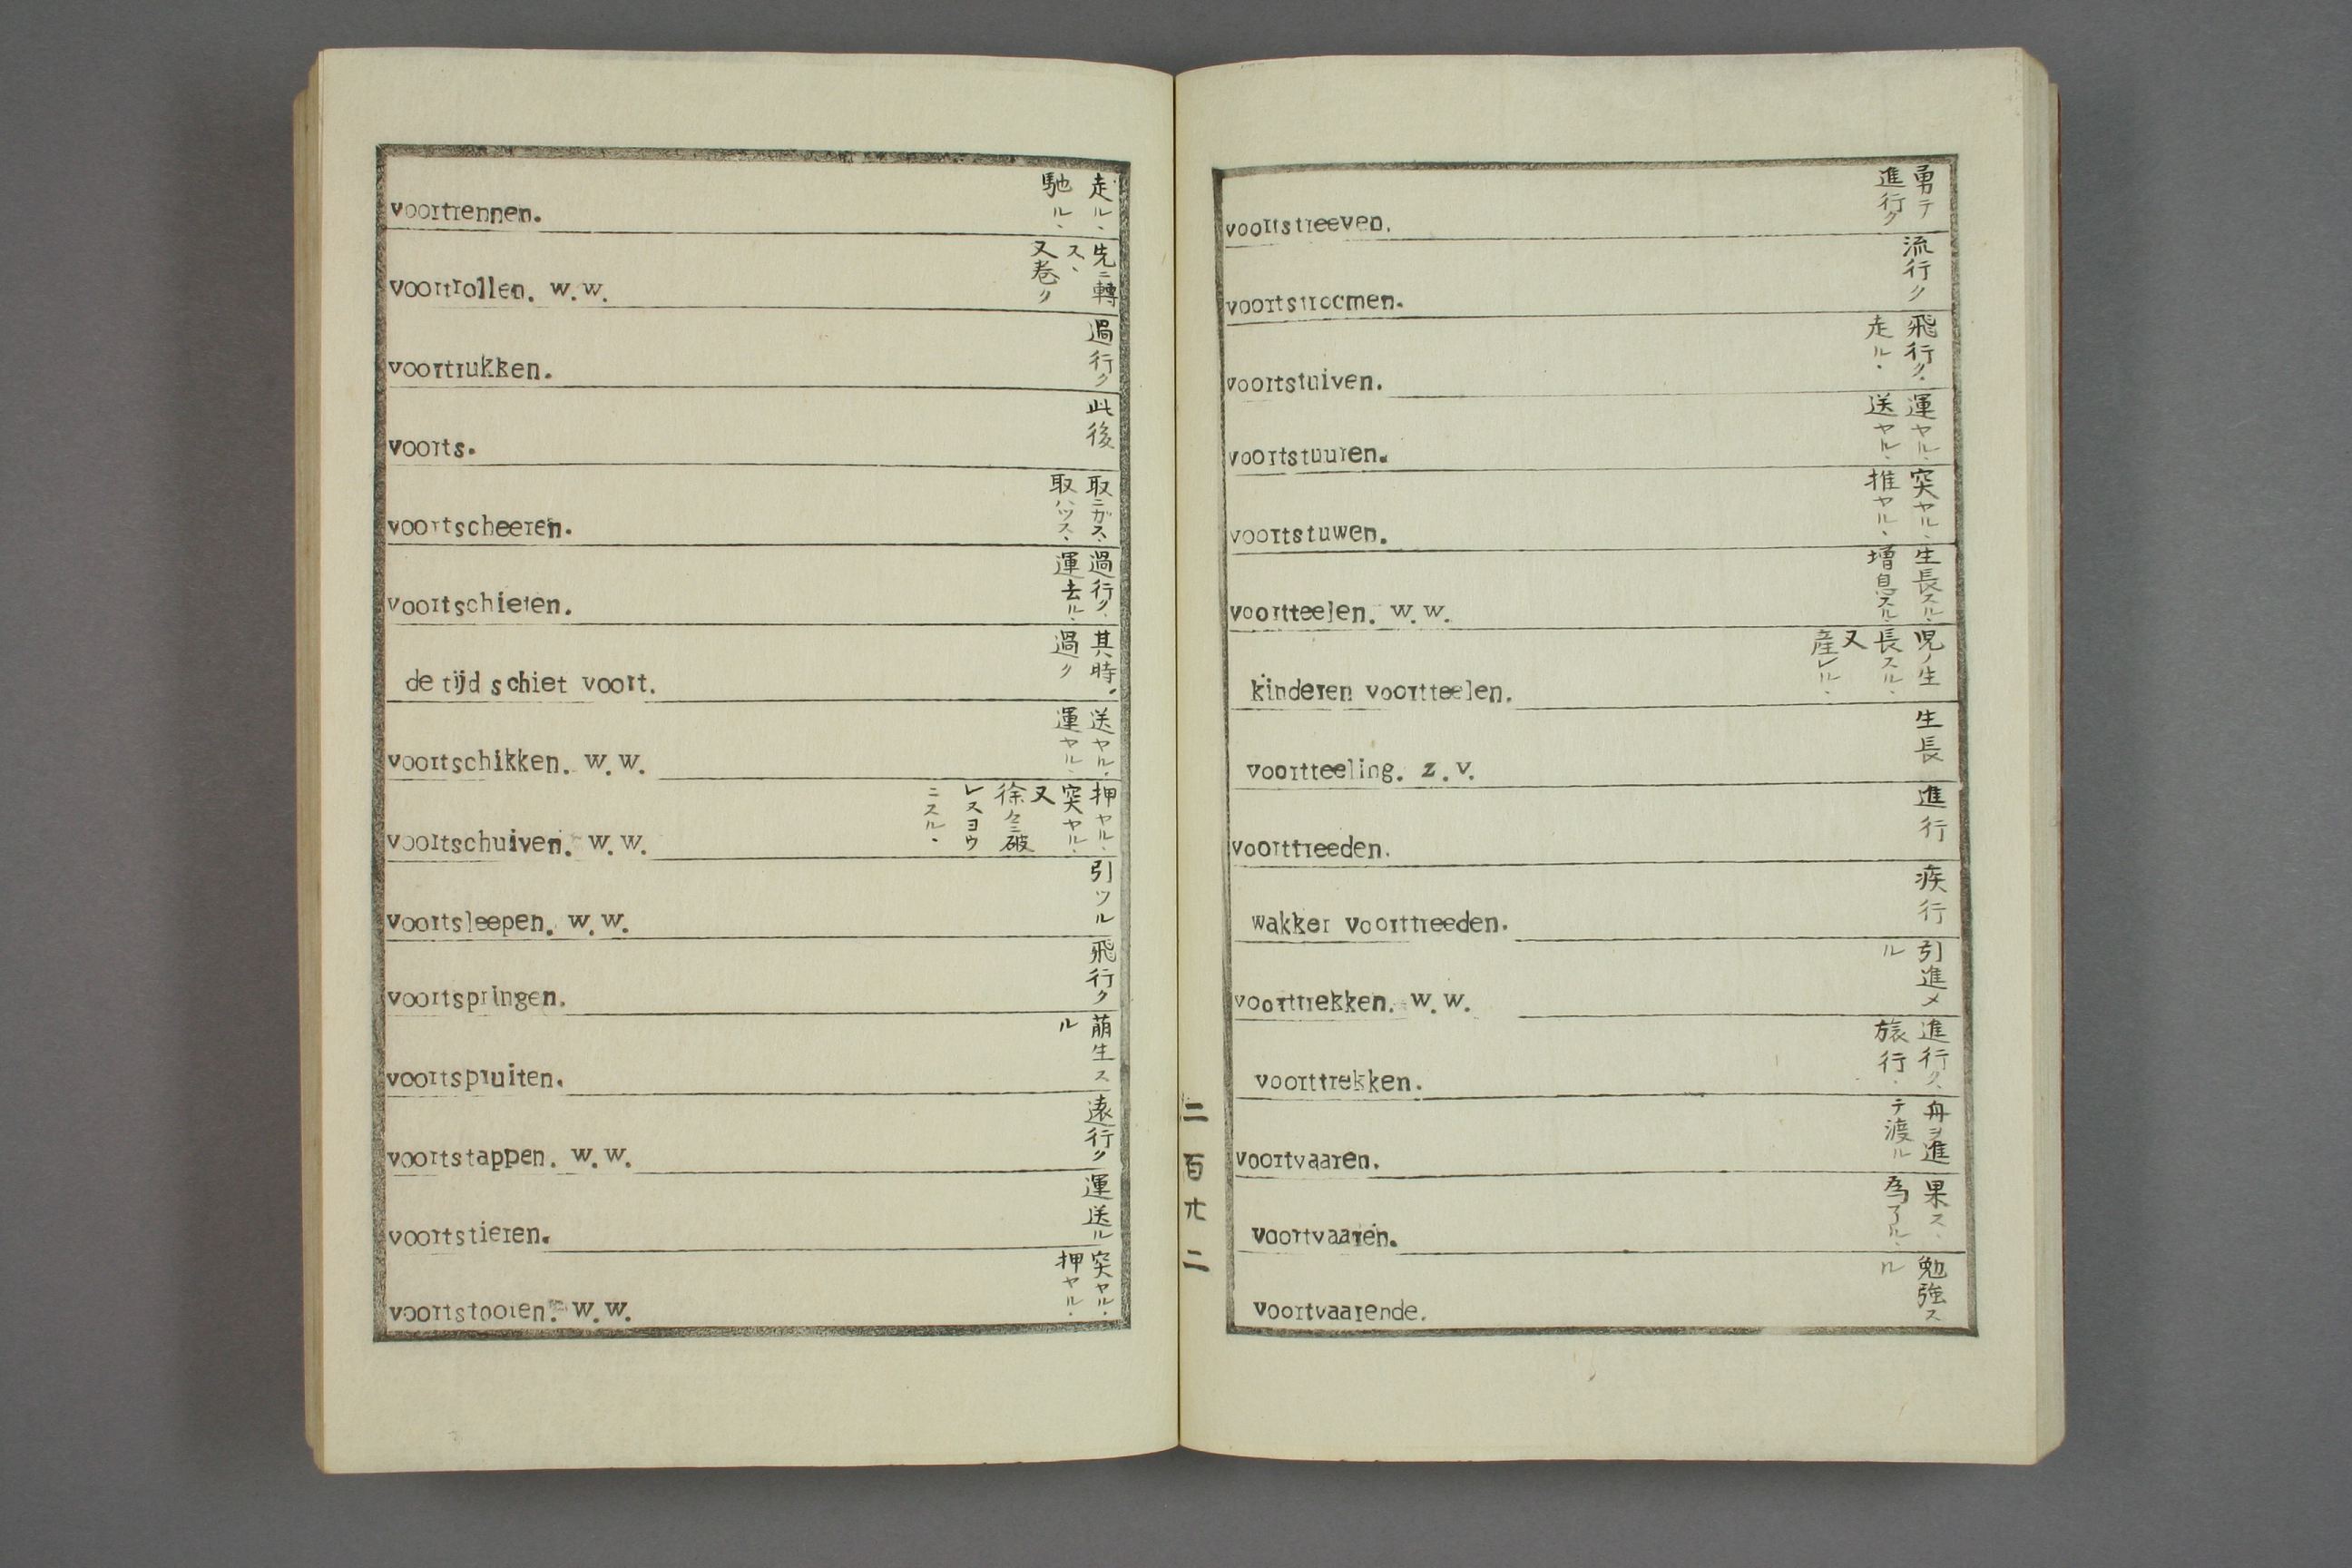 voortrennen.
走ル、
馳ル、
voortrollen. w.w.
先ニ轉
ス、
又巻ク
voortrukken.
過行ク
voorts.
此後
voortscheeren.
取ニガス、
取ハツス、
voortschieten.
過行ク、
運去ル、
de tijd schiet voort.
其時
過ク
voortschikken. w.w.
送ヤル、
運ヤル、
voortschuiven. w.w.
押ヤル、
突ヤル、
又
徐々ニ破
レヌヨウ
ニスル、
voortsleepen. w.w.
引ツル
voortspringen.
飛行ク
voortspruiten.
萠生ス
ル
voortstappen. w.w.
遠行ク
voortstieren.
運送ル
voortstooten. w.w.
突ヤル、
押ヤル、
二百廿二
voortstreeven.
勇テ
進行ク
voortstroomen.
流行ク
voortstuiven.
飛行ク、
走ル、
voortstuuren.
運ヤル、
送ヤル、
voortstuwen.
突ヤル、
推ヤル、
voortteelen. w.w.
生長スル、
増息スル、
kinderen voortteelen.
児ノ生
長スル、
又
産レル、
voortteeling. z.v.
生長
voorttreeden.
進行
wakker voorttreeden.
疾行
voorttrekken. w.w.
引進メ
ル
voorttrekken.
進行ク、
旅行、
voortvaaren.
舟ヲ進
テ渡ル
voortvaaren.
果ス、
為了ル、
voortvaarende.
勉強ス
ル